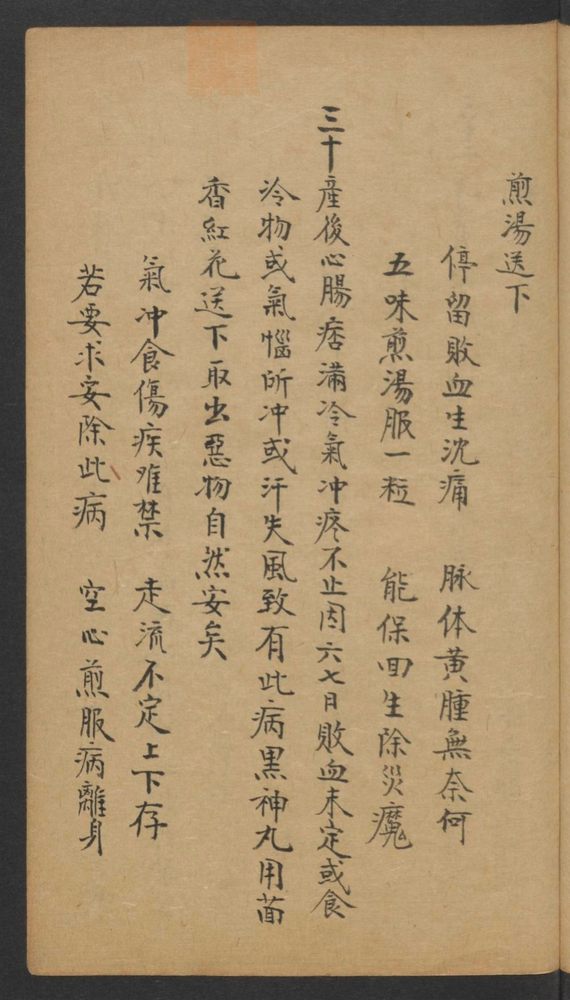 煎湯送下
停留敗血生沈痛 脉体黄腫無奈何
五味煎湯服一粒 能保回生除災魔
三十産後心腸痞滿冷氣冲疼不止因六七日敗血未定或食
冷物或氣惱所冲或汗失風致有此病黑神丸用茴
香紅花送下取出惡物自然安矣
氣冲食傷疾难禁 走流不定上下存
若要求安除此病 空心煎服病離身